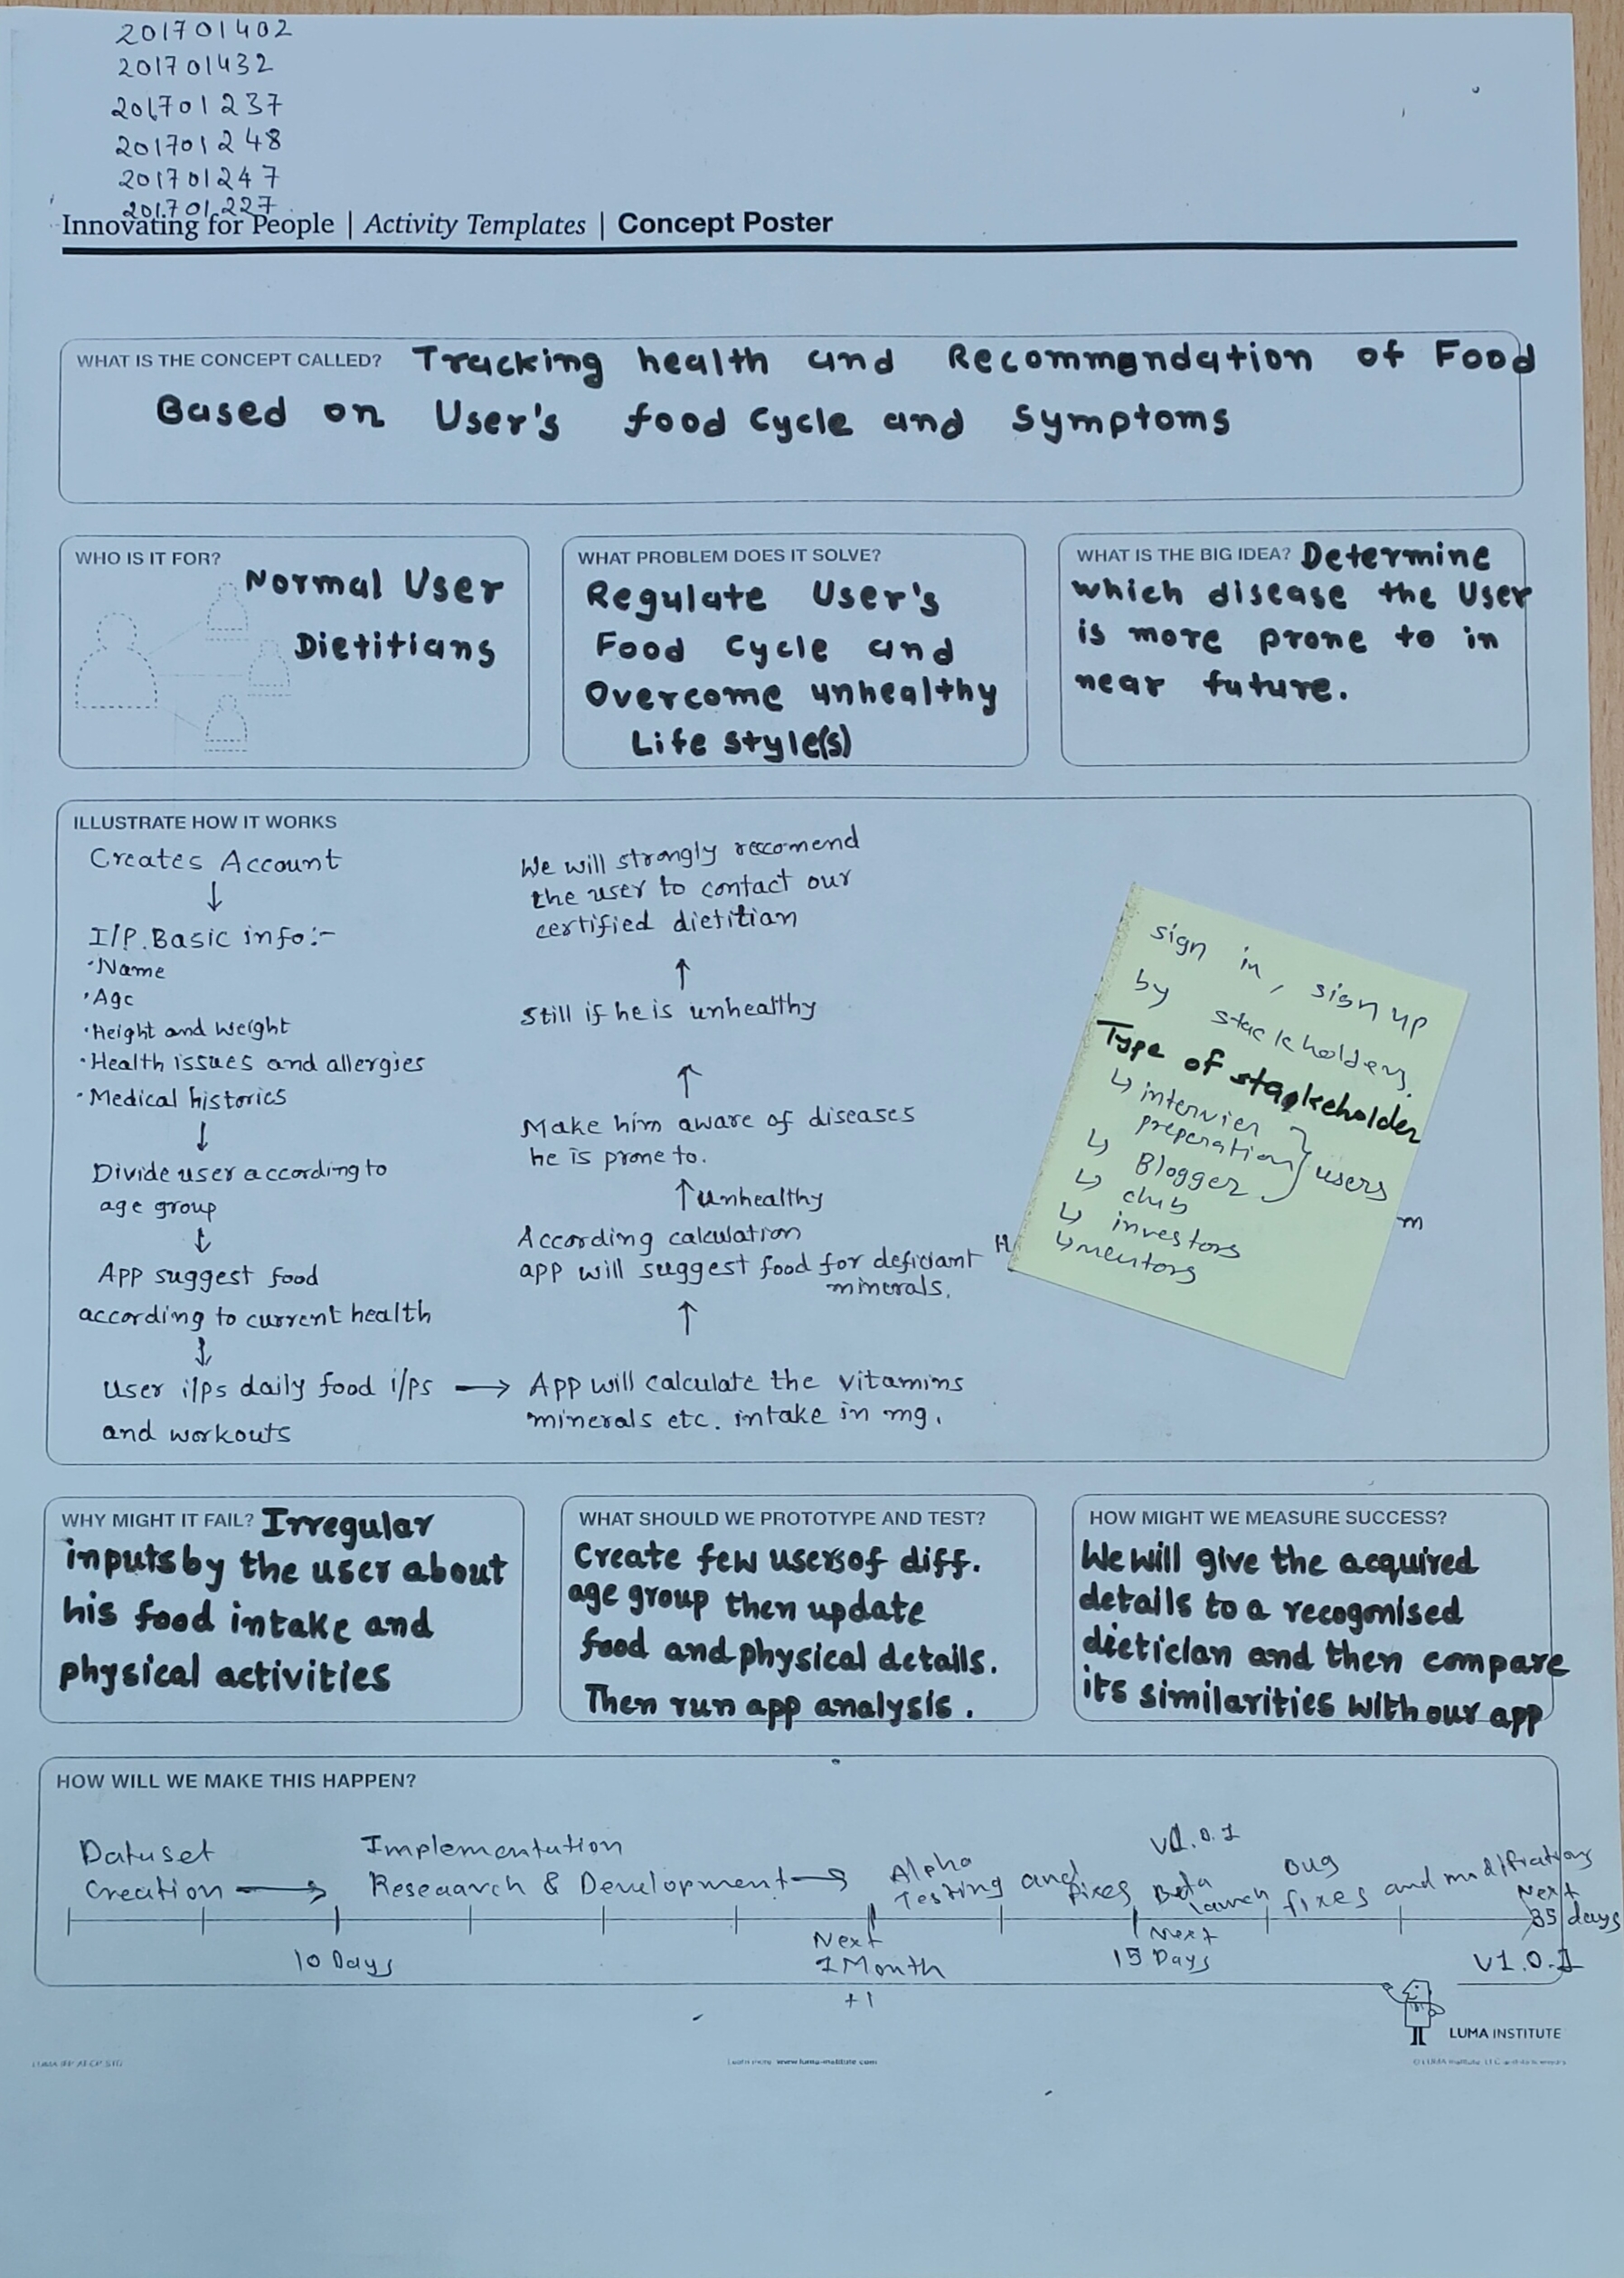 201701402
201701432
201701237
201701248
201701247
201701227
Innovating for People | Activity Templates | Concept Poster
WHAT IS THE CONCEPT CALLED? Tracking health and Recommendation of Food
Based on User's food Cycle and Symptoms
WHO IS IT FOR?
Normal User
Dietitians
WHAT PROBLEM DOES IT SOLVE?
Regulate User's
Food Cycle and
Overcome unhealthy
Life Style(s)
WHAT IS THE BIG IDEA? Determine
which disease the User
is more prone to in
near future.
ILLUSTRATE HOW IT WORKS
Creates Account
↓
I/P. Basic info:-
·Name
·Age
·Height and Weight
·Health issues and allergies
·Medical histories
↓
Divide user according to
age group
↓
App suggest food
according to current health
↓
User i/ps daily food i/ps → App will calculate the vitamins
and workouts
minerals etc. intake in mg.
↑
According calculation
app will suggest food for deficiant
minerals.
↑ unhealthy
Make him aware of diseases
he is prone to.
↑
Still if he is unhealthy
↑
We will strongly reccomend
the user to contact our
certified dietitian
H
m
sign in, sign up
by stackholders.
Type of stakeholder
↳ interview
preperation
↳ Blogger } users
↳ club
↳ investors
↳ mentors
WHY MIGHT IT FAIL? Irregular
inputs by the user about
his food intake and
physical activities
WHAT SHOULD WE PROTOTYPE AND TEST?
Create few users of diff.
age group then update
food and physical details.
Then run app analysis.
HOW MIGHT WE MEASURE SUCCESS?
We will give the acquired
details to a recogonised
dietician and then compare
its similarities with our app
HOW WILL WE MAKE THIS HAPPEN?
Dataset
Creation →
Implementation
Reseaarch & Development →
Alpha
Testing and Fixes
Beta
launch
bug
fixes and modifications
10 Days
Next
1 Month
+1
Next
15 Days
Next
35 days
v1.0.1
LUMA INSTITUTE
Learn more www.luma-institute.com